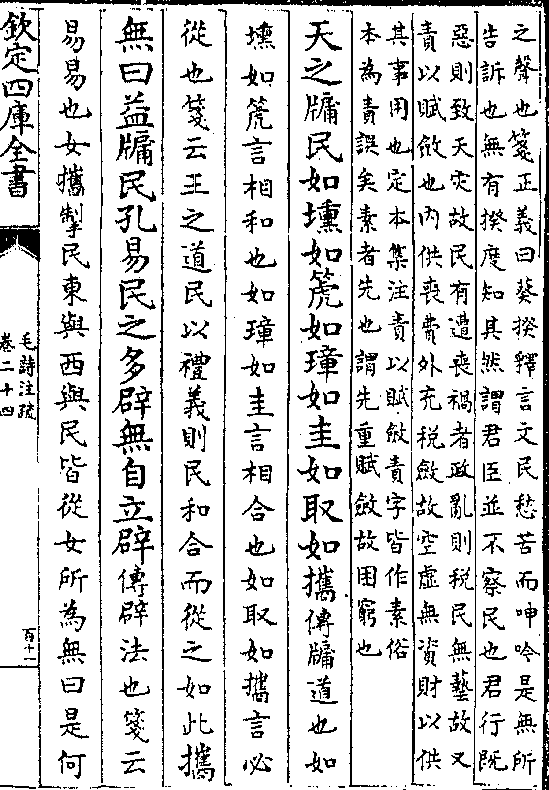 之聲也箋正義曰葵揆釋言文民愁苦而呻吟是無所
告訴也無有揆度知其然謂君臣並不察民也君行既
惡則致天灾故民有遭喪禍者政亂則税民無藝故又
責以賦斂也内供喪費外充税斂故空虛無資財以供
其事用也定本集注責以賦斂責字皆作素俗
本為責誤矣素者先也謂先重賦斂故困窮也
天之牖民如壎如箎如璋如圭如取如攜傳牖道也如
壎如箎言相和也如璋如圭言相合也如取如攜言必
從也箋云王之道民以禮義則民和合而從之如此攜
無曰益牖民孔易民之多辟無自立辟傳辟法也箋云
易易也女攜掣民東與西與民皆從女所為無曰是何
欽定四庫全書
毛詩注疏
卷二十四
百十一